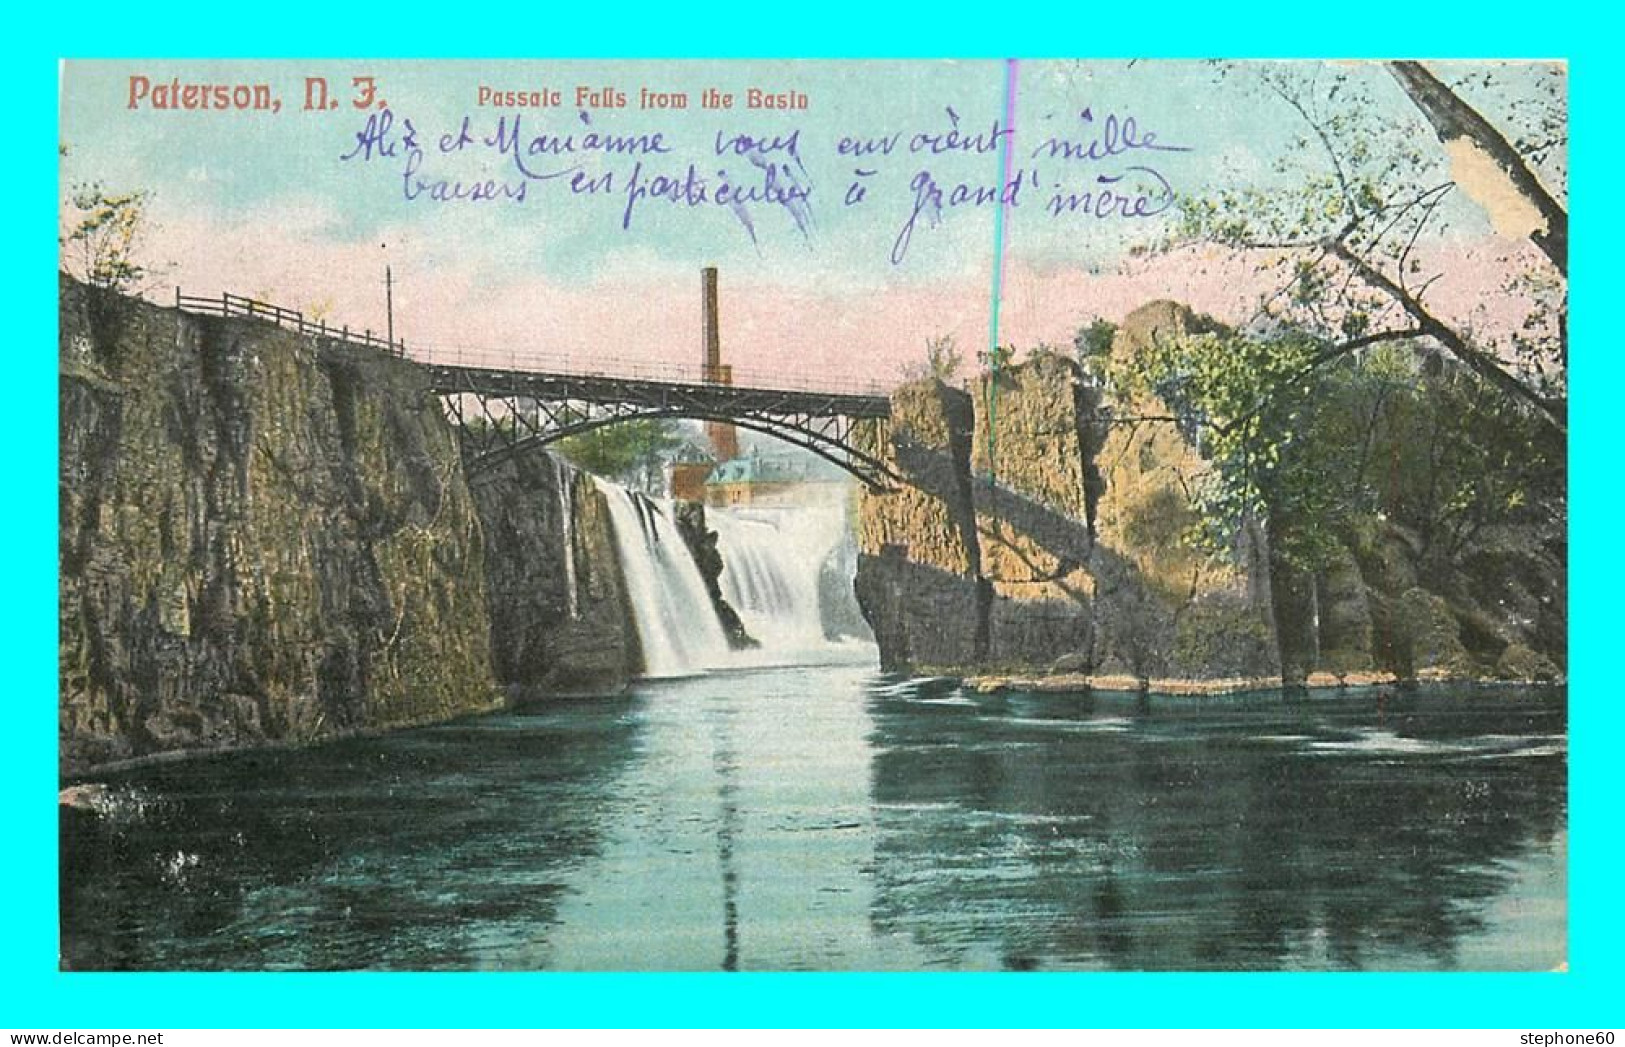 Paterson, N. J. Passaic Falls from the Basin
Alix et Marianne vous envoient mille
baisers en particulier à grand'mère
stephone60